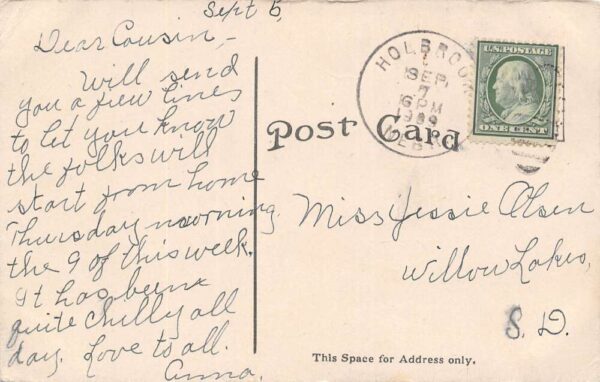 Sept 6,
Dear Cousin,-
Will send
you a few lines
to let you know
the folks will
start from home
Thursday morning
the 9 of this week.
It has been
quite chilly all
day. Love to all.
Anna.
HOLBROOK
SEP
7
6 PM
1909
NEBR
U.S. POSTAGE
ONE CENT
Post Card
Miss Jessie Olsen
Willow Lakes,
S. D.
This Space for Address only.